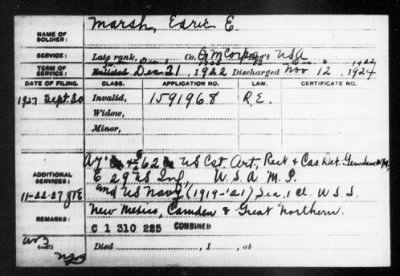 NAME OF SOLDIER: Marsh, Earie E.
SERVICE: Late rank, Co. Q M Corps, Reg't USA
TERM OF SERVICE: Enlisted Dec 21, 1922 Discharged Nov 12, 1924
DATE OF FILING. CLASS. APPLICATION NO. LAW. CERTIFICATE NO.
1927 Sept. 20 Invalid, 1591968 R.E.
Widow,
Minor,
ADDITIONAL SERVICES: & 62 US Cst. Art, Rect & Cas. Det.
E 29 US Inf, U.S.A. M.P.
11-22-27 and US Navy (1919-'21) Sea. 1 cl. U S S
REMARKS: New Mexico, Camden & Great Northern.
C 1 310 225 COMBINED
Died , 1 , at